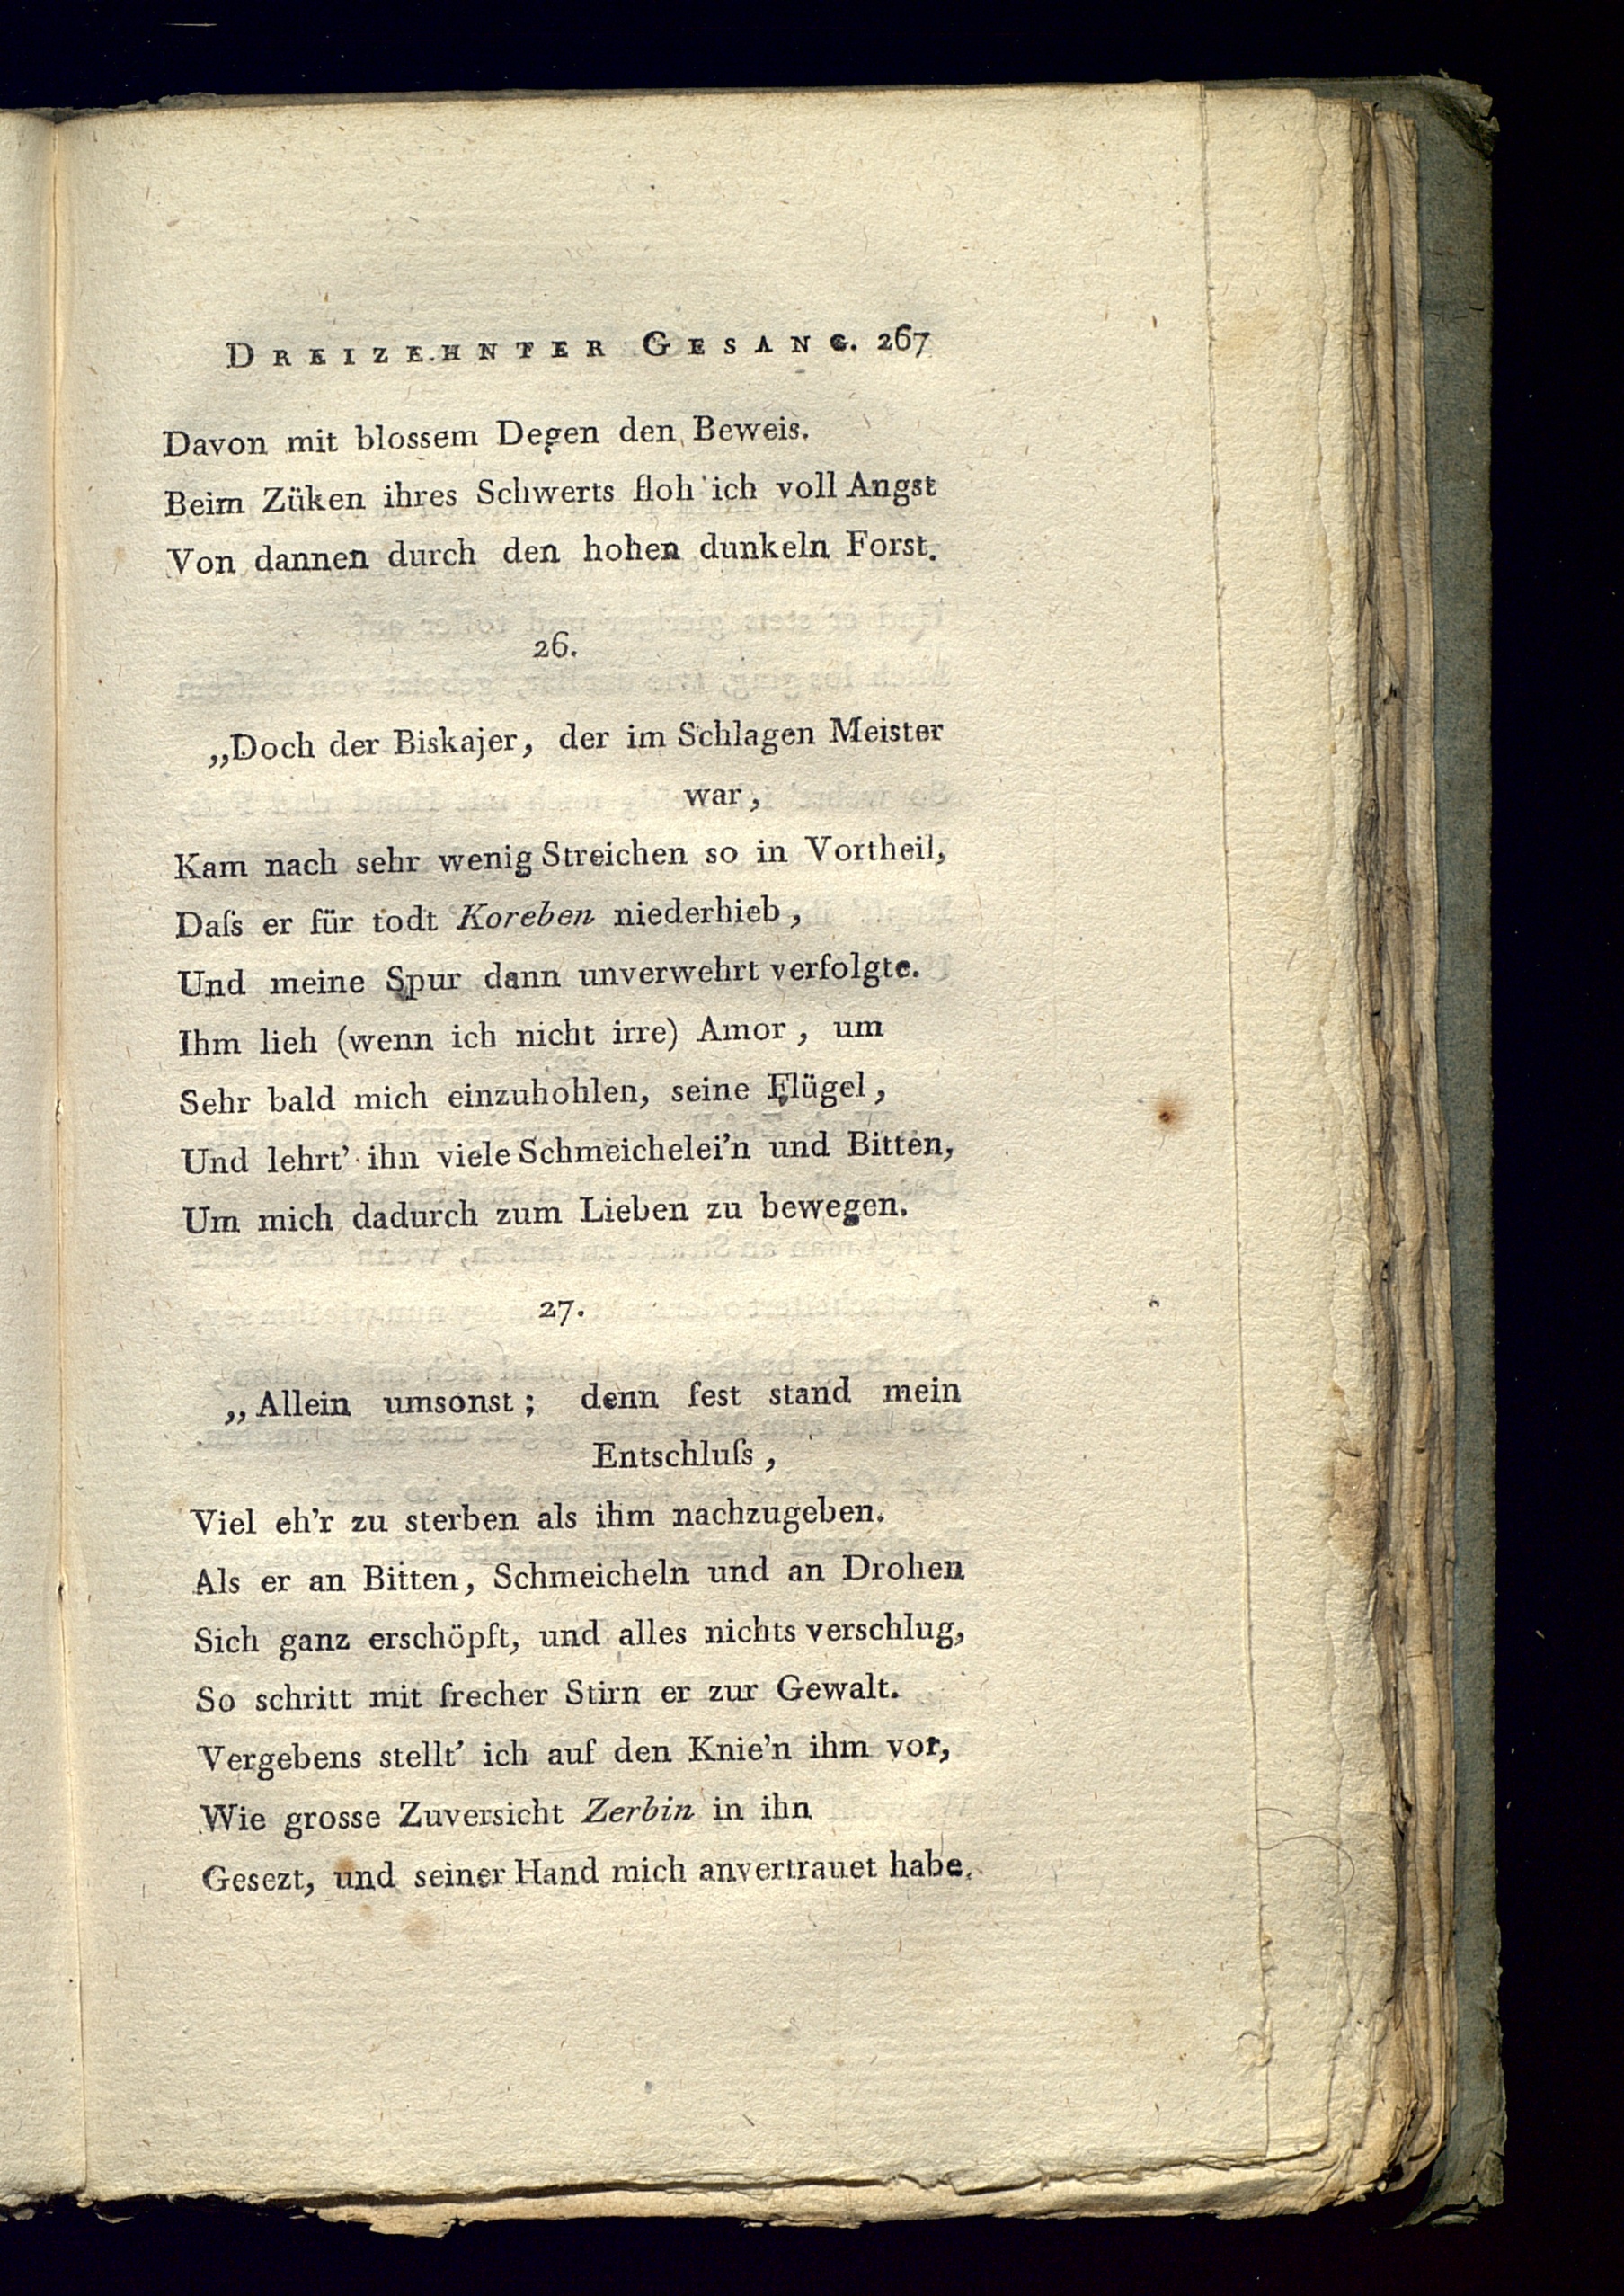 DREIZEHNTER GESANG. 267
Davon mit blossem Degen den Beweis.
Beim Züken ihres Schwerts floh ich voll Angst
Von dannen durch den hohen dunkeln Forst.
26.
„Doch der Biskajer, der im Schlagen Meister
war,
Kam nach sehr wenig Streichen so in Vortheil,
Daſs er für todt Koreben niederhieb,
Und meine Spur dann unverwehrt verfolgte.
Ihm lieh (wenn ich nicht irre) Amor, um
Sehr bald mich einzuhohlen, seine Flügel,
Und lehrt' ihn viele Schmeichelei'n und Bitten,
Um mich dadurch zum Lieben zu bewegen.
27.
„Allein umsonst; denn fest stand mein
Entschluſs,
Viel eh'r zu sterben als ihm nachzugeben.
Als er an Bitten, Schmeicheln und an Drohen
Sich ganz erschöpft, und alles nichts verschlug,
So schritt mit frecher Stirn er zur Gewalt.
Vergebens stellt' ich auf den Knie'n ihm vor,
Wie grosse Zuversicht Zerbin in ihn
Gesezt, und seiner Hand mich anvertrauet habe.